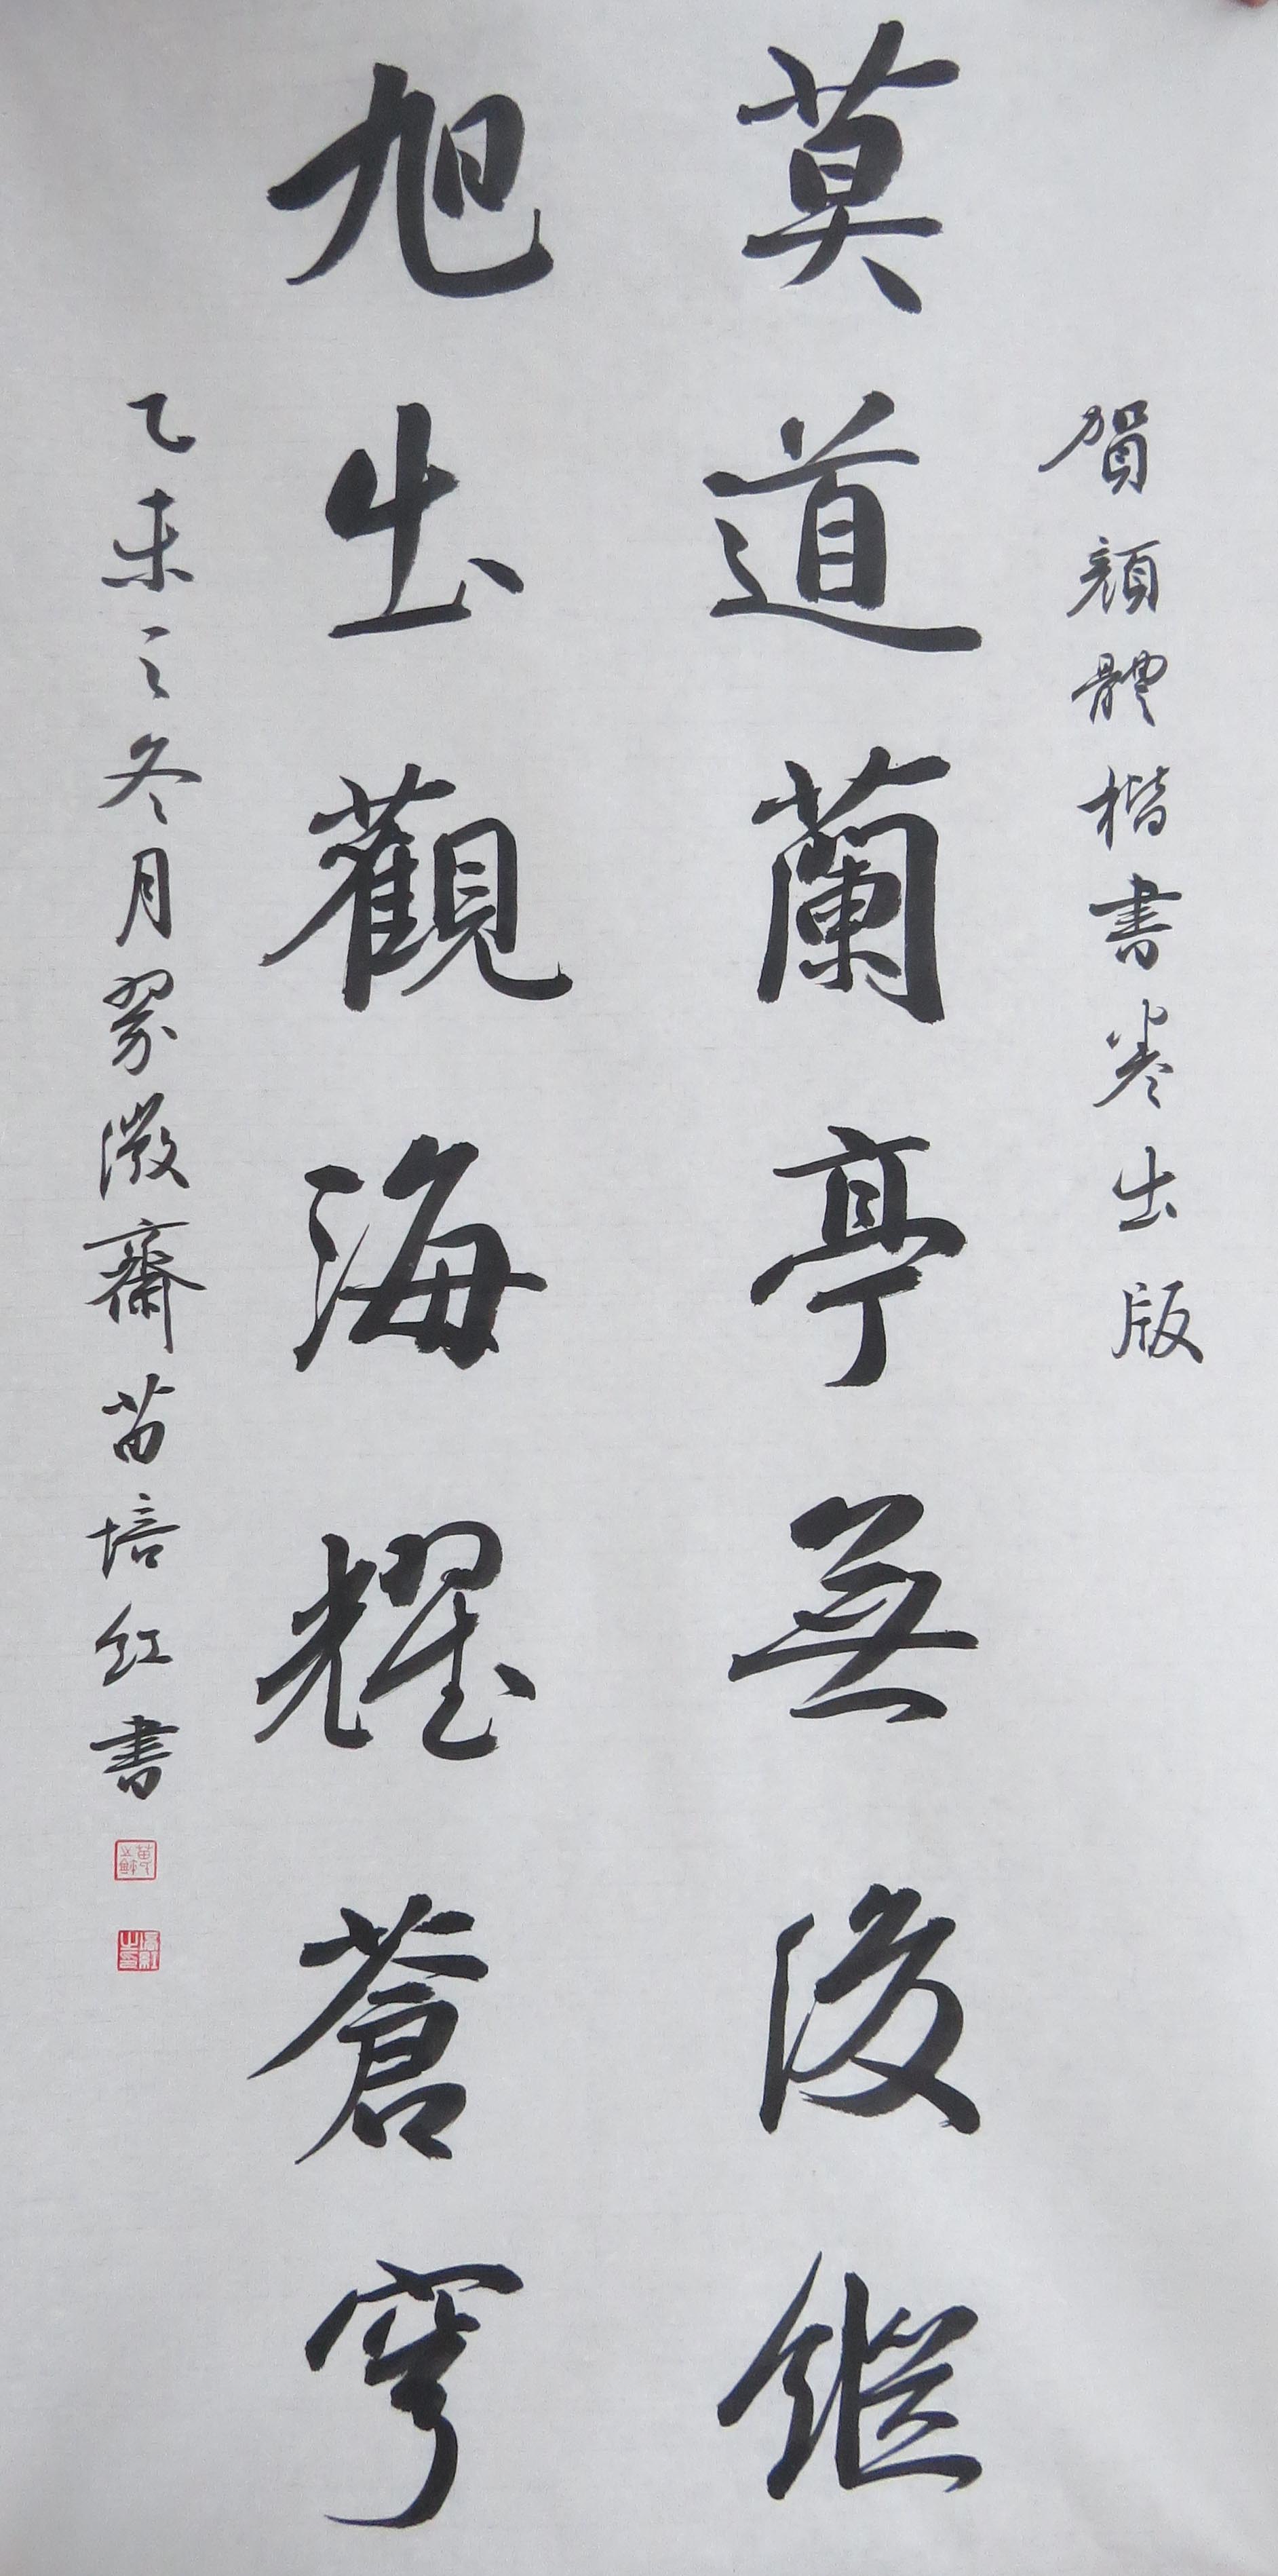 賀顏體楷書卷出版
莫道蘭亭無後縱
旭出觀海耀蒼穹
乙未之冬月翠微齋苗培红書